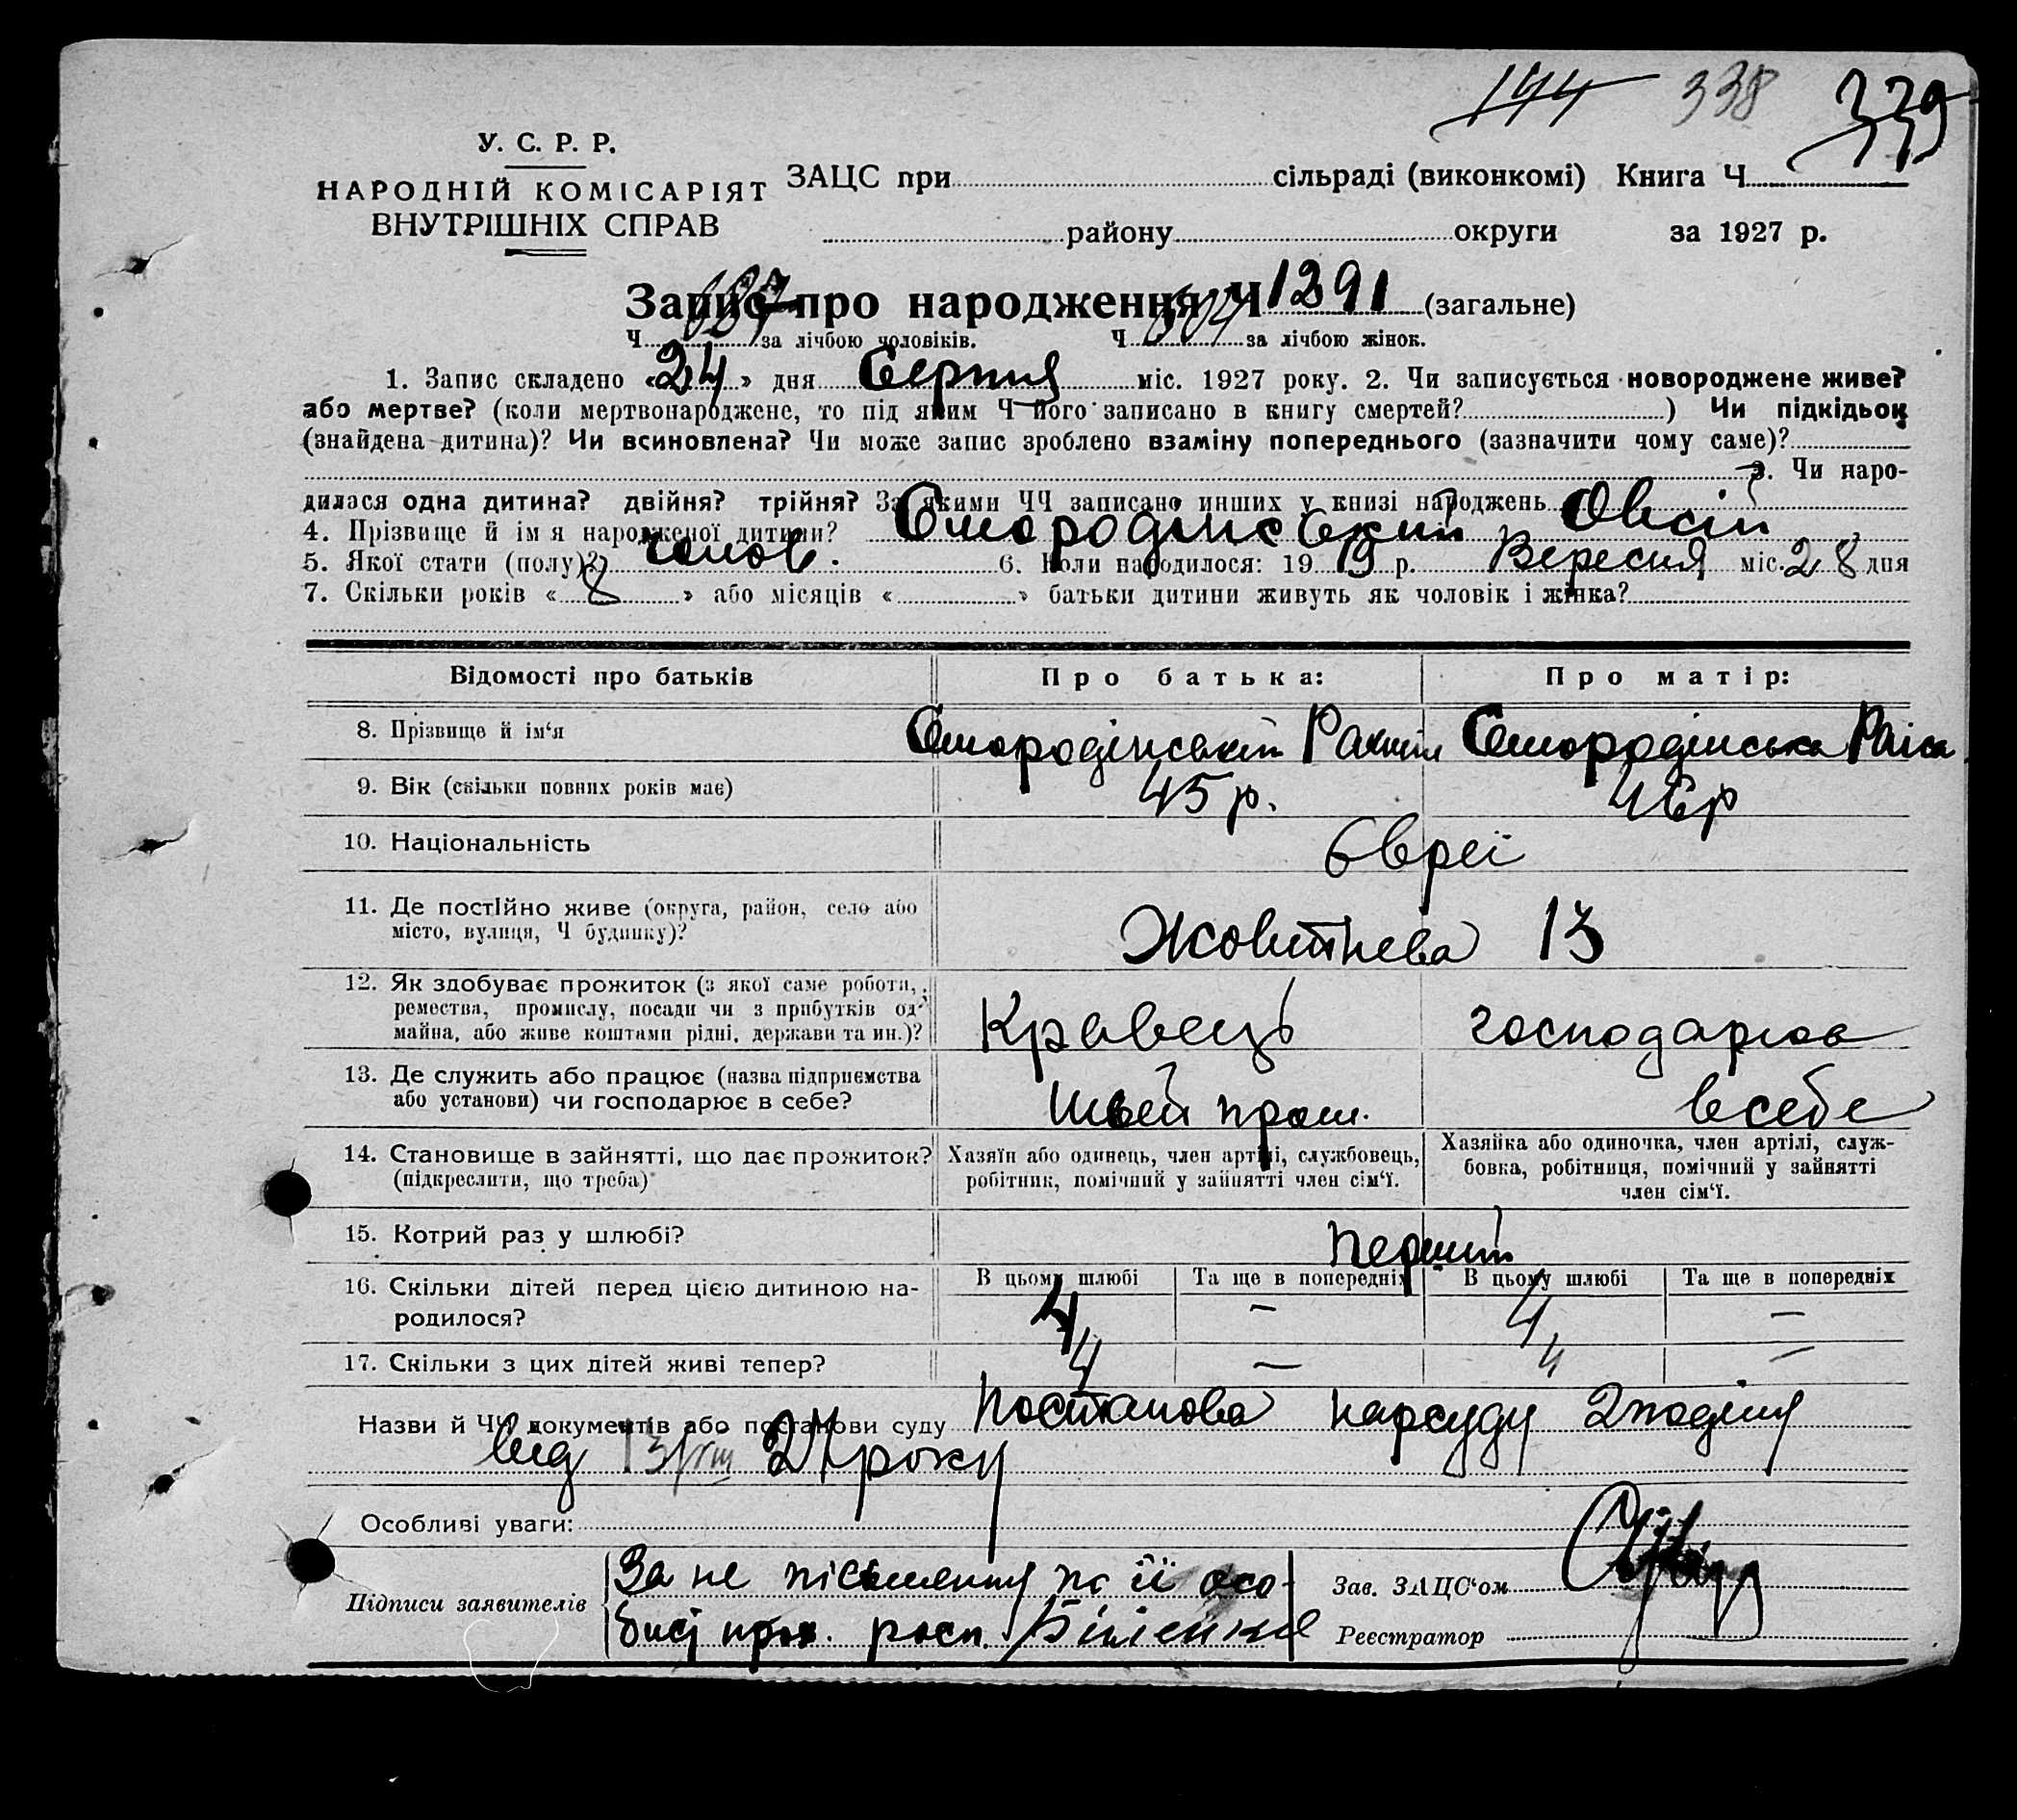 144 338 339
У. С. Р. Р.
НАРОДНІЙ КОМІСАРІЯТ
ВНУТРІШНІХ СПРАВ
ЗАЦС при сільраді (виконкомі) Книга Ч
району округи за 1927 р.
Запис про народження Ч 1291 (загальне)
Ч 687 за лічбою чоловіків. Ч 604 за лічбою жінок.
1. Запис складено «24» дня Серпня міс. 1927 року. 2. Чи записується новороджене живе?
або мертве? (коли мертвонароджене, то під яким Ч його записано в книгу смертей? ) Чи підкідьок
(знайдена дитина)? Чи всиновлена? Чи може запис зроблено взаміну попереднього (зазначити чому саме)?
3. Чи наро-
дилася одна дитина? двійня? трійня? За якими ЧЧ записано инших у книзі народжень
4. Прізвище й ім я народженої дитини? Смородинський Овсій
5. Якої стати (полу)? чолов. 6. Коли народилося: 19 19 р. Вересня міс. 28 дня
7. Скільки років «8» або місяців « » батьки дитини живуть як чоловік і жінка?
Відомості про батьків Про батька: Про матір:
8. Прізвище й ім‘я Смородінський Рахміл Смородінська Раїса
9. Вік (скільки повних років має) 45 р. 46 р
10. Національність Євреї
11. Де постІйно живе (округа, район, село або
місто, вулиця, Ч будинку)? Жовтнева 13
12. Як здобуває прожиток (з якої саме роботи,
ремества, промислу, посади чи з прибутків од
майна, або живе коштами рідні, держави та ин.)? Кравець господарює
13. Де служить або працює (назва підприємства
або установи) чи господарює в себе? Швей пром. в себе
14. Становище в зайнятті, що дає прожиток?
(підкреслити, що треба)
Хазяїн або одинець, член артілі, службовець,
робітник, помічний у зайнятті член сім‘ї.
Хазяйка або одиночка, член артілі, служ-
бовка, робітниця, помічний у зайнятті
член сім‘ї.
15. Котрий раз у шлюбі? перший
В цьому шлюбі Та ще в попередніх В цьому шлюбі Та ще в попередніх
16. Скільки дітей перед цією дитиною на-
родилося? 4 — 4 —
17. Скільки з цих дітей живі тепер? 4 — 4 —
Назви й ЧЧ документів або постанови суду Постанова нарсуду 2 
від 13/VIII 27 року
Особливі уваги:
Підписи заявителів За не письменну по її осо-
бист прох. росп. Біліенко
Зав. ЗАЦС‘ом
Реєстратор